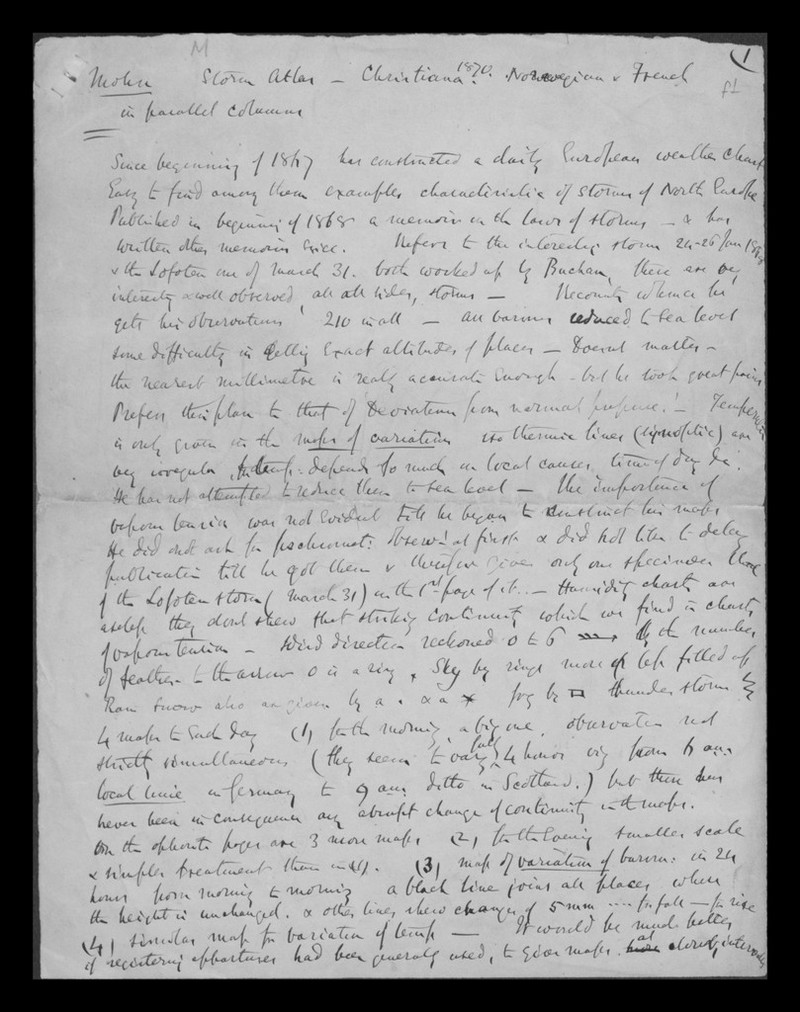 M
(1
Mohn Storm Atlas — Christiana 1870. Norwegian & French
in parallel columns
Since beginning of 1867 has constructed a daily European weather chart
Easy to find among them examples characteristic of storms of North Europe
Published in beginning of 1868 a memoir on the laws of storms — & has
written other memoirs since. Refers to the interesting storm 24-26 Jan 1868
& the Lofoten one of March 31. both worked up by Buchan, there are very
interesting & well observed, on all sides, storms — Recounts whence he
gets his observations 210 in all — all barom reduced to sea level
some difficulty in getting exact altitudes of places — Doesn't matter —
the nearest millimetre is really accurate enough - but he took great pains
Prefers this plan to that of 'Deviations from normal pressure.' — Temperature
is only given in the maps of variation isothermic lines (synoptic) are
very irregular, temp: depends so much on local causes, time of day &c.
He has not attempted to reduce them to sea level — The importance of
vapour tension was not evident till he began to construct his maps
He did not ask for psychromet: observns at first & did not like to delay
publication till he got them & therefore gives only one specimen
of the Lofoten storm (March 31) on the 1st page of it. — Humidity charts are
useless they dont shew that striking continuity which we find in charts
of vapour tension — Wind direction reckoned 0 to 6 by the number
of feathers to the arrow 0 is a ring, Sky by rings more or less filled up
Rain snow also are given by a • & a * fog by thunder storm
4 maps to each day (1) for the morning, a big one, observation not
strictly simultaneous (they seem to vary fully 4 hours viz from 6 am.
local time in Germany to 9 am. ditto in Scotland.) but there has
never been in consequence any abrupt change of continuity in the maps.
On the opposite pages are 3 more maps (2) for the evening smaller scale
& simpler treatment than in (1). (3) map of variation of barom: in 24
hours from morning to morning a black line joins all places where
the height is unchanged. & other lines shew changes of 5 mm .... for fall — for rise
(4) similar map for variation of temp — It would be much better
if registering apparatuses had been generally used, to give maps at closer intervals